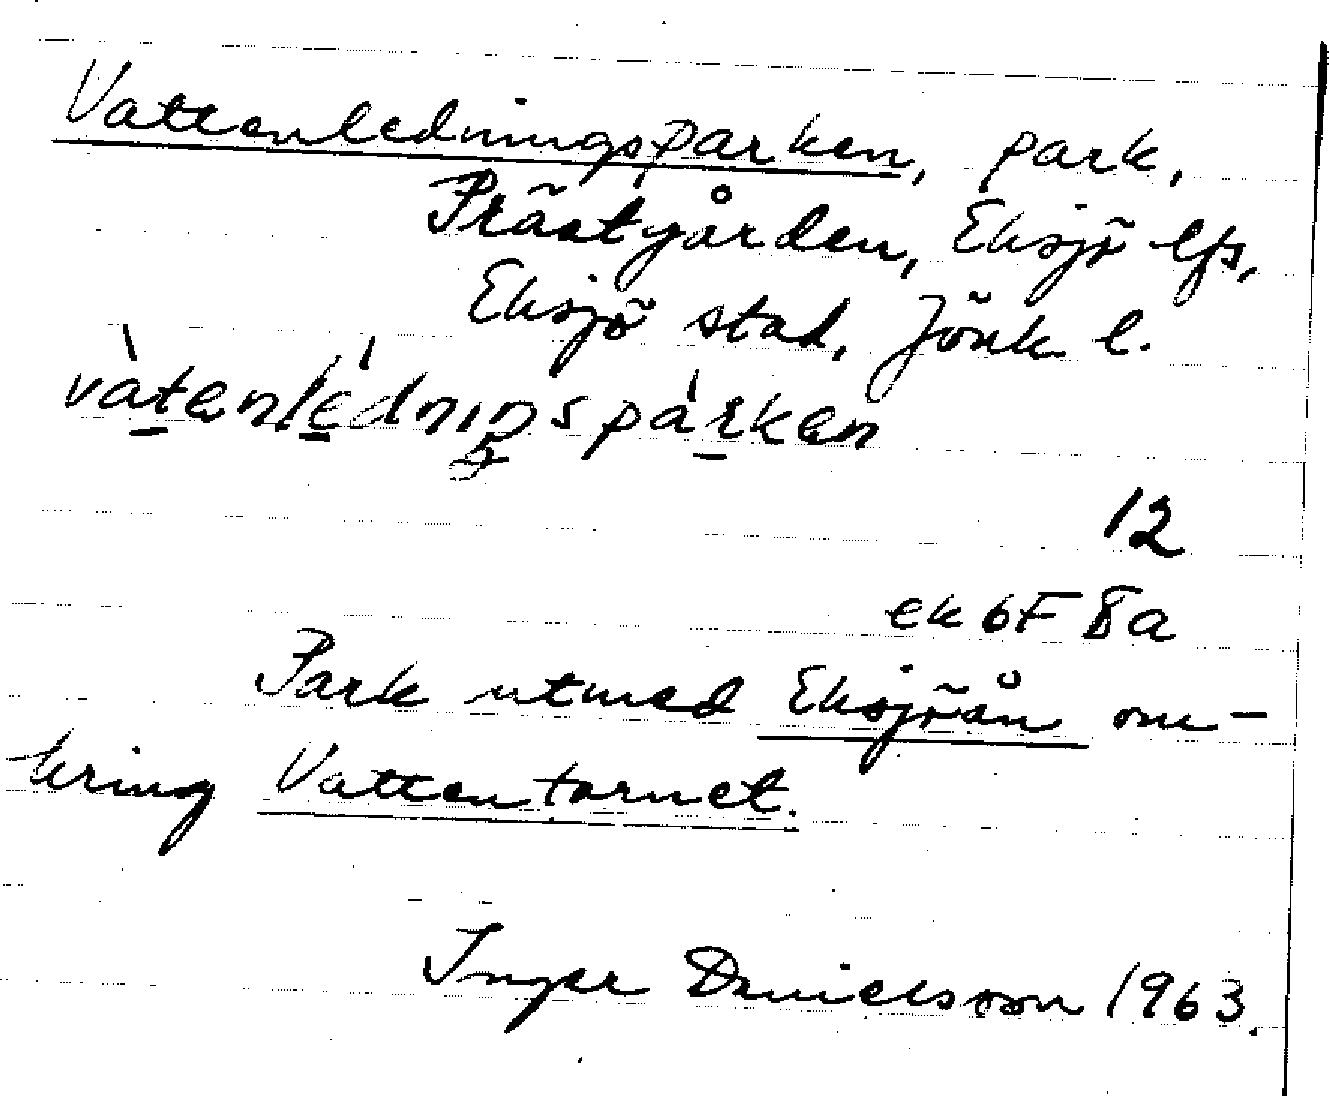 Vattenledningsparken, park,
Prästgården, Eksjö lfs,
Eksjö stad, Jönk. l.
vàtenlédniŋspárken
12
ek 6F 8a
Park utmed Eksjöån om-
kring Vattentornet.
Inger Danielsson 1963.